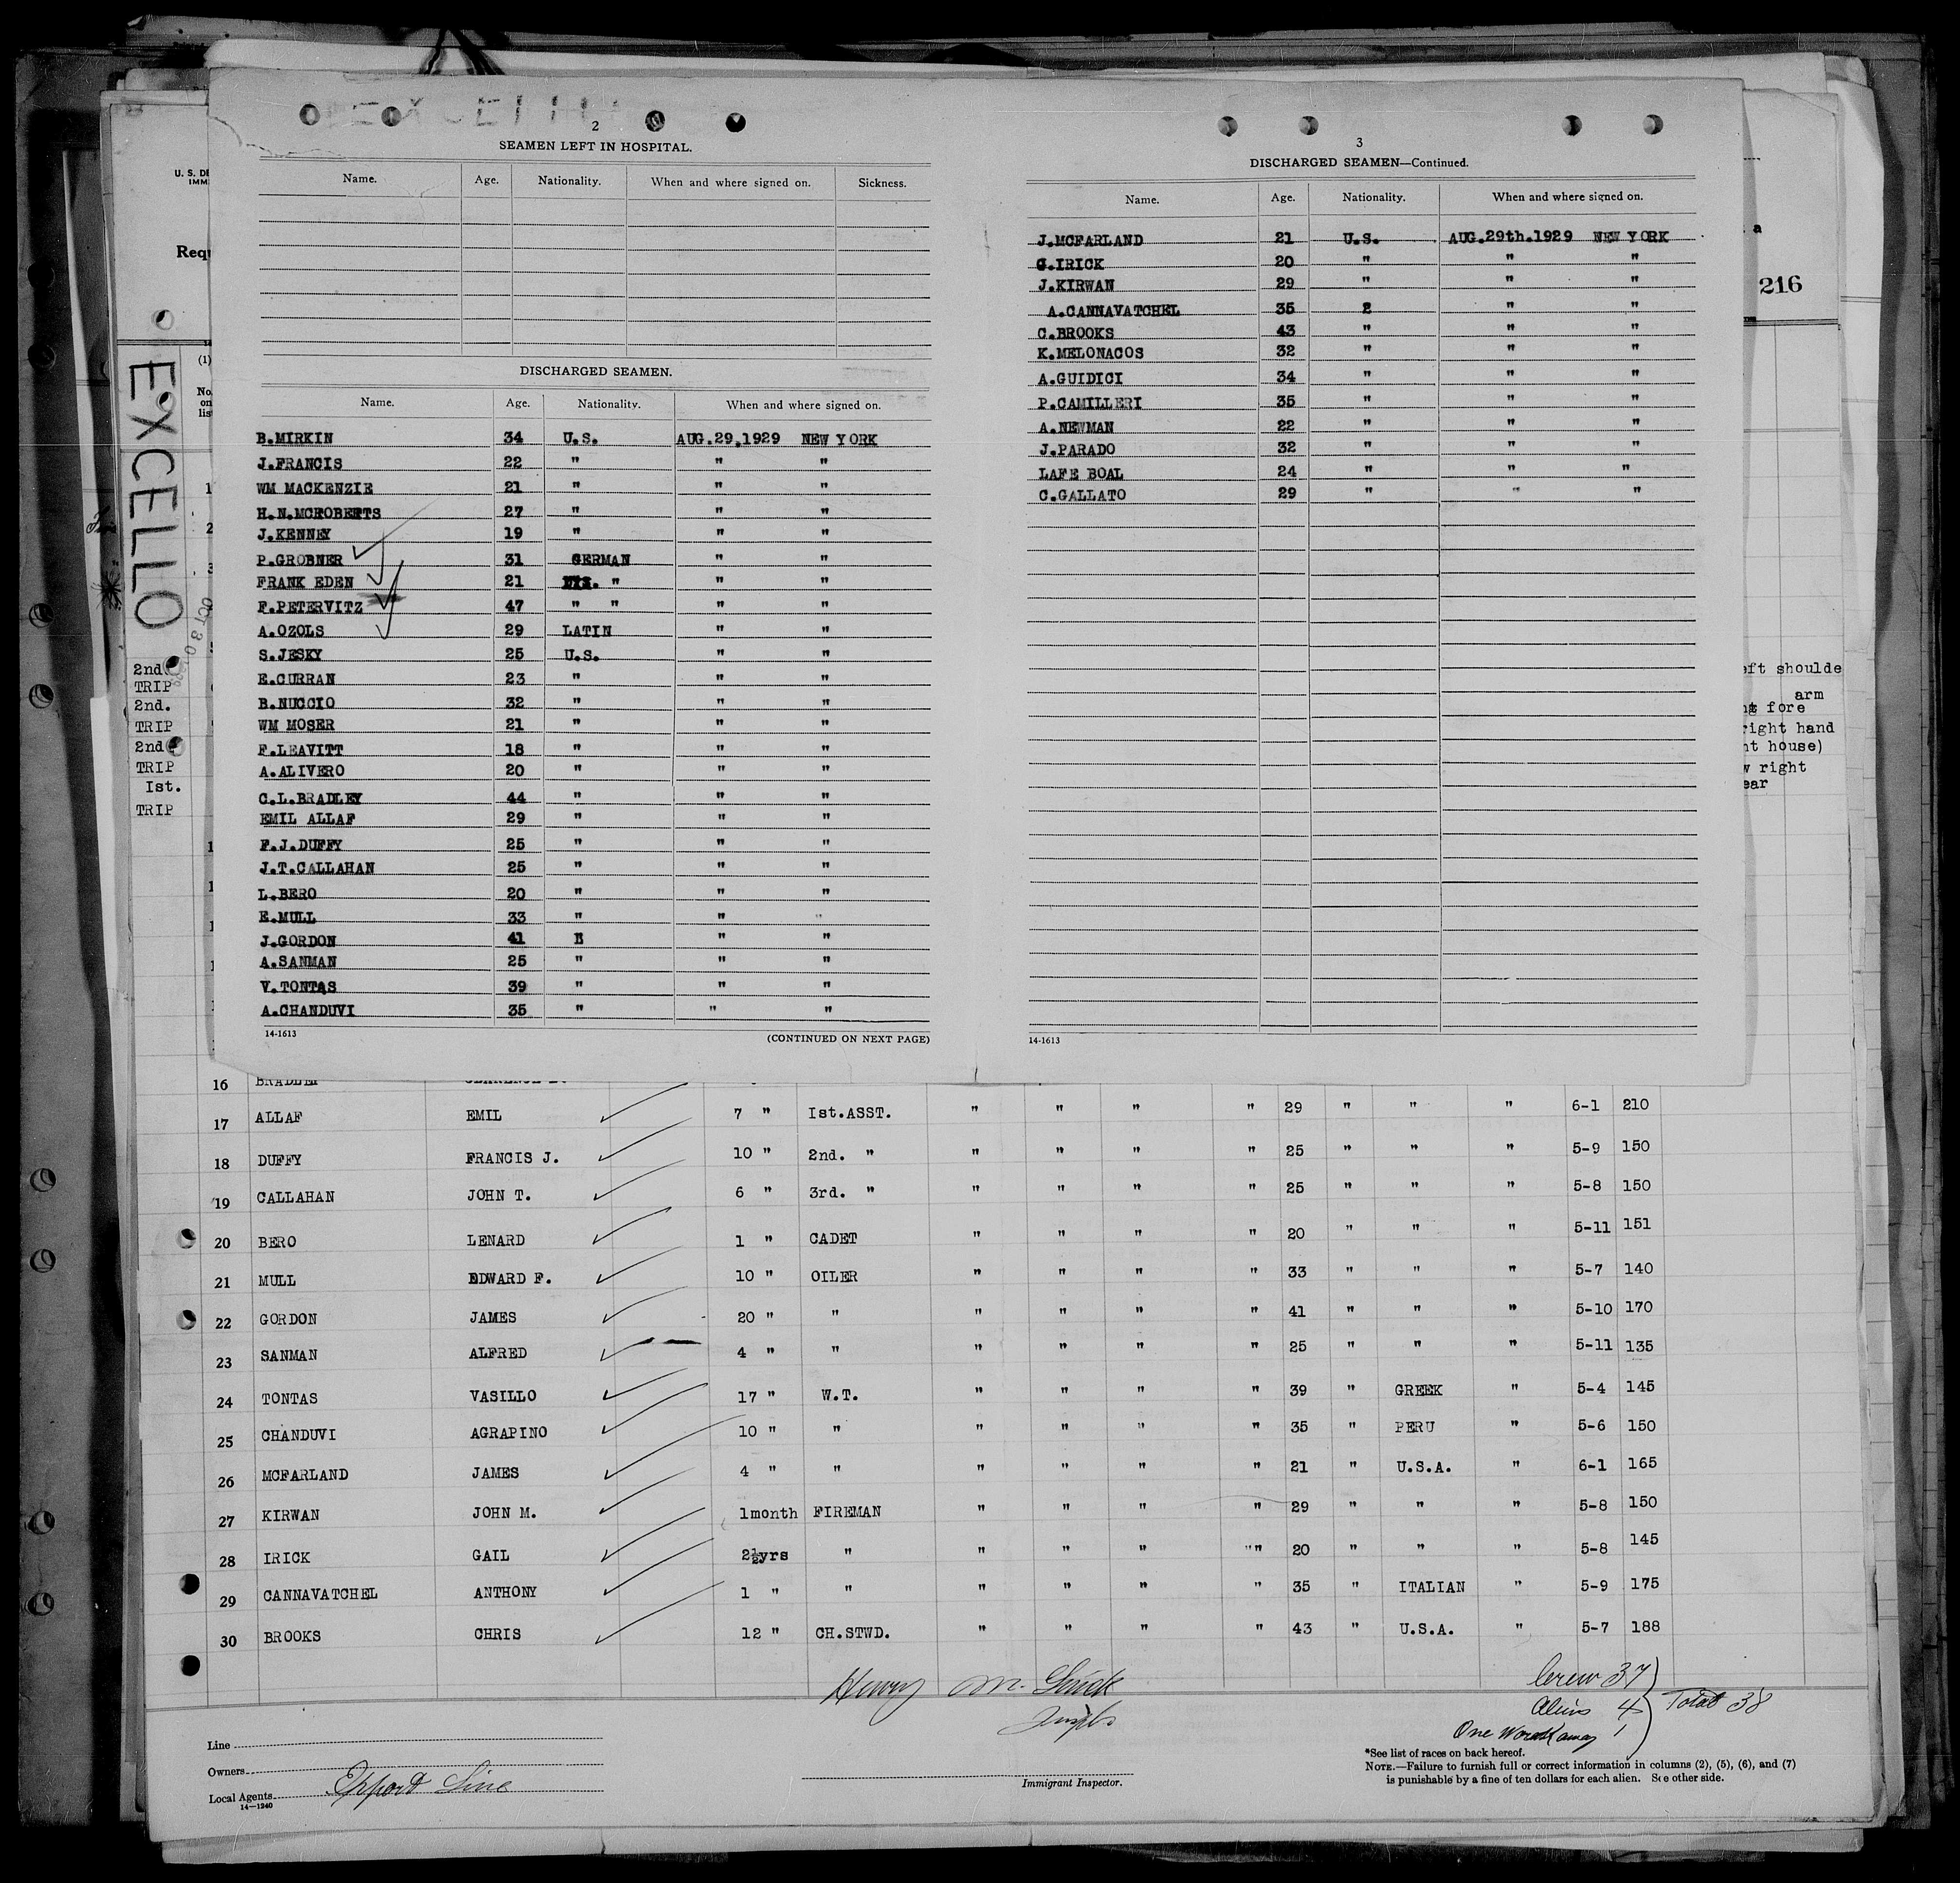 2
SEAMEN LEFT IN HOSPITAL.
Name. Age. Nationality. When and where signed on. Sickness.
DISCHARGED SEAMEN.
Name. Age. Nationality. When and where signed on.
B.MIRKIN 34 U.S. AUG.29,1929 NEW YORK
J.FRANCIS 22 " " "
WM MACKENZIE 21 " " "
H.N.MCROBERTS 27 " " "
J.KENNEY 19 " " "
P.GROBNER 31 GERMAN " "
FRANK EDEN 21 " " "
F.PETERVITZ 47 " " " "
A.OZOLS 29 LATIN " "
S.JESKY 25 U.S. " "
E.CURRAN 23 " " "
B.NUCCIO 32 " " "
WM MOSER 21 " " "
F.LEAVITT 18 " " "
A.ALIVERO 20 " " "
C.L.BRADLEY 44 " " "
EMIL ALLAF 29 " " "
F.J.DUFFY 25 " " "
J.T.CALLAHAN 25 " " "
L.BERO 20 " " "
E.MULL 33 " " "
J.GORDON 41 " "
A.SANMAN 25 " " "
V.TONTAS 39 " " "
A.CHANDUVI 35 " " "
14-1613 (CONTINUED ON NEXT PAGE)
3
DISCHARGED SEAMEN—Continued.
Name. Age. Nationality. When and where signed on.
J.MCFARLAND 21 U.S. AUG.29th.1929 NEW YORK
G.IRICK 20 " " "
J.KIRWAN 29 " " "
A.CANNAVATCHEL 35 2 " "
C.BROOKS 43 " " "
K.MELONACOS 32 " " "
A.GUIDICI 34 " " "
P.CAMILLERI 35 " " "
A.NEWMAN 22 " " "
J.PARADO 32 " " "
LAFE BOAL 24 " " "
C.GALLATO 29 " " "
14-1613
216
EXCELLO
2nd
TRIP
2nd.
TRIP
2nd
TRIP
Ist.
TRIP
arm
fore
right hand
house)
right
16 BRADLEY CLARENCE L.
17 ALLAF EMIL 7 " Ist.ASST. " " " " 29 " " " 6-1 210
18 DUFFY FRANCIS J. 10 " 2nd. " " " " " 25 " " " 5-9 150
19 CALLAHAN JOHN T. 6 " 3rd. " " " " " 25 " " " 5-8 150
20 BERO LENARD 1 " CADET " " " " 20 " " " 5-11 151
21 MULL EDWARD F. 10 " OILER " " " " 33 " " " 5-7 140
22 GORDON JAMES 20 " " " " " " 41 " " " 5-10 170
23 SANMAN ALFRED 4 " " " " " " 25 " " " 5-11 135
24 TONTAS VASILLO 17 " W.T. " " " " 39 " GREEK " 5-4 145
25 CHANDUVI AGRAPINO 10 " " " " " " 35 " PERU " 5-6 150
26 MCFARLAND JAMES 4 " " " " " " 21 " U.S.A. " 6-1 165
27 KIRWAN JOHN M. 1month FIREMAN " " " " 29 " " " 5-8 150
28 IRICK GAIL 2½yrs " " " " "" 20 " " " 5-8 145
29 CANNAVATCHEL ANTHONY 1 " " " " " " 35 " ITALIAN " 5-9 175
30 BROOKS CHRIS 12 " CH.STWD. " " " " 43 " U.S.A. " 5-7 188
Crew 37
Aliens 4
One Workaway 1
Total 38
Line
Owners
Local Agents Export Line
14—1240
Immigrant Inspector.
*See list of races on back hereof.
NOTE.—Failure to furnish full or correct information in columns (2), (5), (6), and (7)
is punishable by a fine of ten dollars for each alien. See other side.